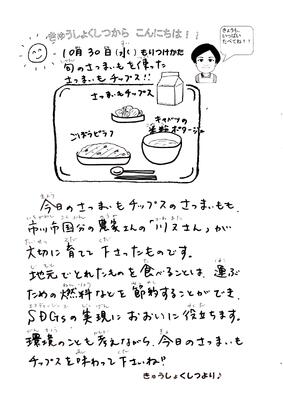 きゅうしょくしつから こんにちは!!
きょうも、
いっぱい
たべてね!!
10月30日(水) もりつけかた
旬のさつまいもを使った
さつまいもチップス!!
さつまいもチップス
キャベツの
米粉ポタージュ
ごぼうピラフ
今日のさつまいもチップスのさつまいもも、
市川市国分の農家さんの「
さん」が
大切に育てて下さったものです。
地元でとれたものを食べることは、運ぶ
ための燃料などを節約することができ、
SDGsの実現におおいに役立ちます。
環境のことも考えながら、今日のさつまいも
チップスを味わって下さいね!!
きゅうしょくしつより♪